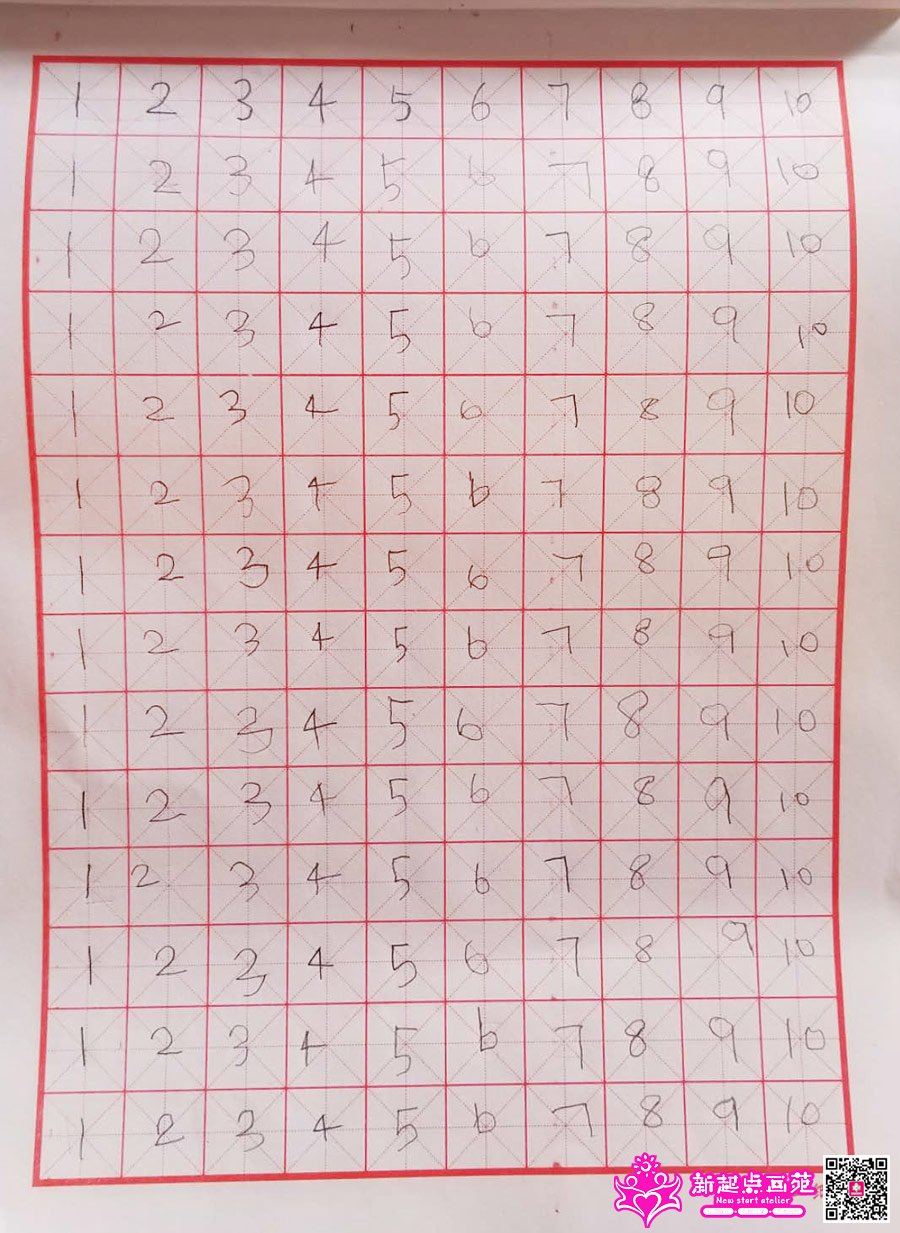 1 2 3 4 5 6 7 8 9 10
1 2 3 4 5 6 7 8 9 10
1 2 3 4 5 6 7 8 9 10
1 2 3 4 5 6 7 8 9 10
1 2 3 4 5 6 7 8 9 10
1 2 3 4 5 6 7 8 9 10
1 2 3 4 5 6 7 8 9 10
1 2 3 4 5 6 7 8 9 10
1 2 3 4 5 6 7 8 9 10
1 2 3 4 5 6 7 8 9 10
1 2 3 4 5 6 7 8 9 10
1 2 3 4 5 6 7 8 9 10
1 2 3 4 5 6 7 8 9 10
1 2 3 4 5 6 7 8 9 10
新起点画苑
New start atelier